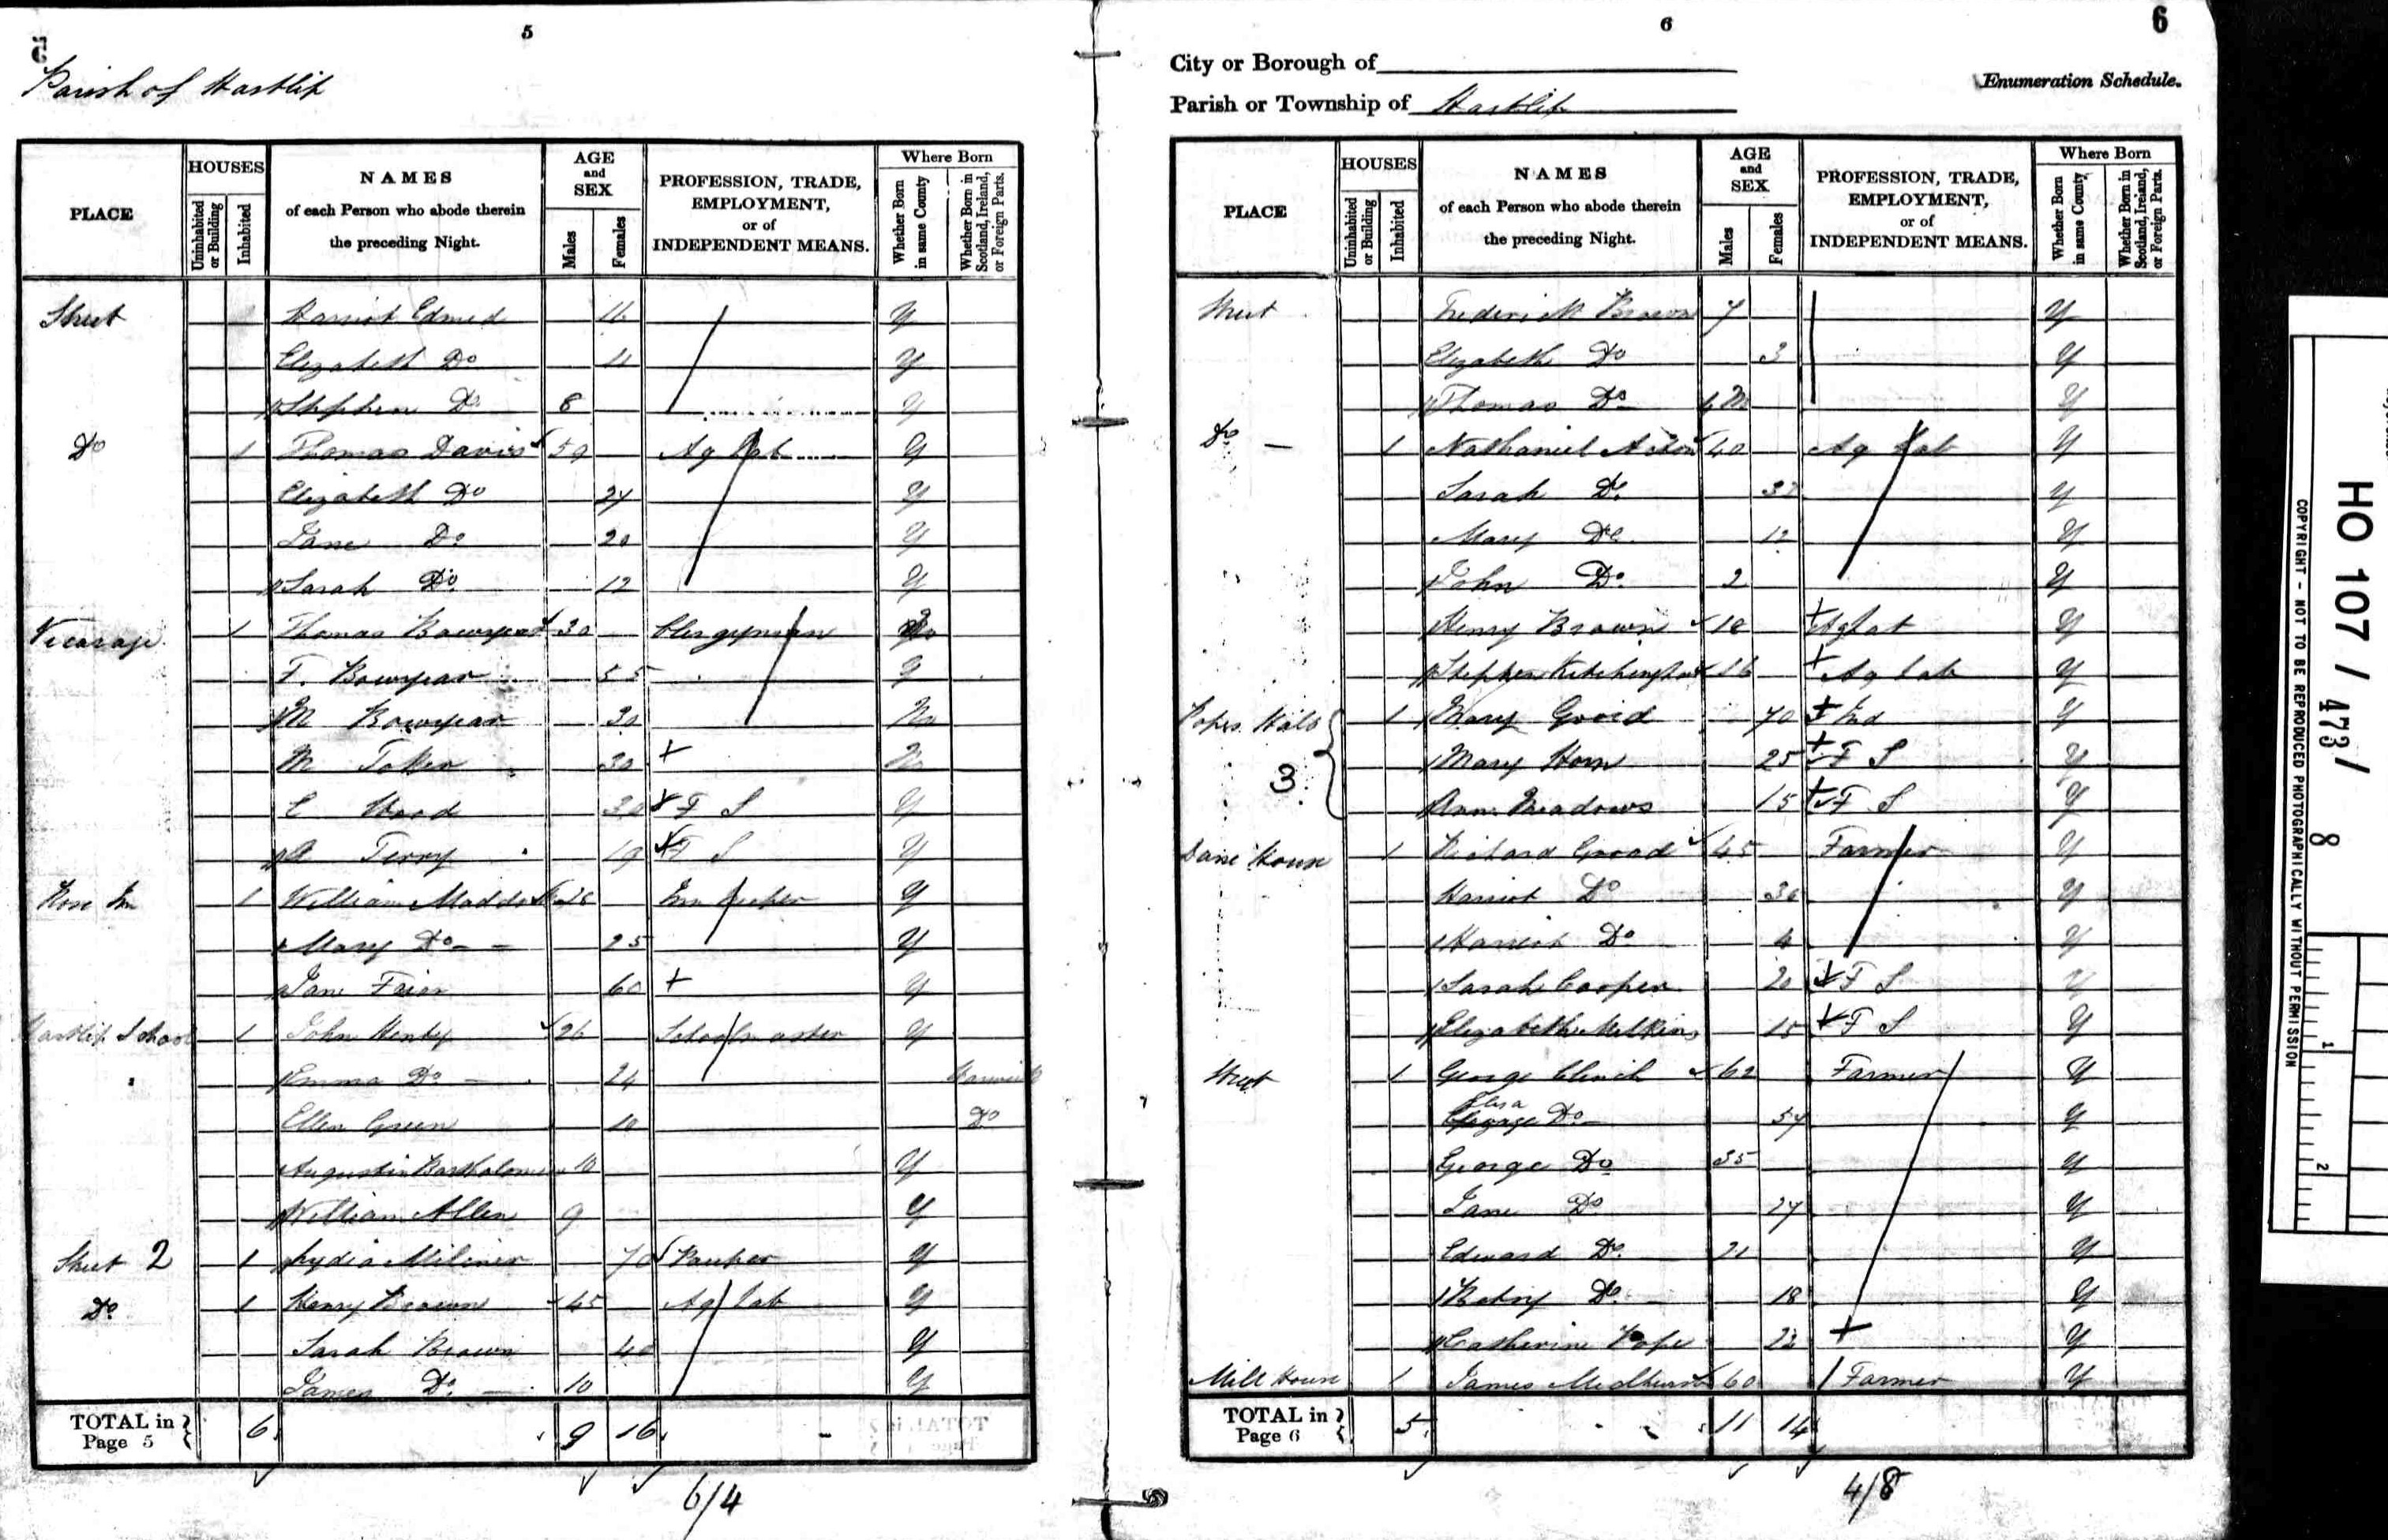 5
5
Parish of Hartlip
PLACE
HOUSES
Uninhabited or Building
Inhabited
NAMES
of each Person who abode therein
the preceding Night.
AGE
and
SEX
Males
Females
PROFESSION, TRADE,
EMPLOYMENT,
or of
INDEPENDENT MEANS.
Where Born
Whether Born in same County
Whether Born in Scotland, Ireland, or Foreign Parts.
Street Harriot Edmed Y
Elizabeth Do 11 Y
Stephen Do 8 Y
Do 1 Thomas Davis 59 Ag Lab Y
Elizabeth Do 24 Y
Jane Do 20 Y
Sarah Do 12 Y
Vicarage 1 Thomas Bowyear 30 Clergyman No
F. Bowyear 55 Y
M Bowyear 30 No
M Toker 30 + N
C Wood 30 + F S Y
A Terry 19 + F S Y
Rose Inn 1 William Maddo Inn keeper Y
Mary Do 25 Y
Jane Friar 60 + Y
Hartlip School 1 John Henty 26 Schoolmaster Y
Emma Do 24 Warwick
Ellen Green 10 Do
Augustin Bartholomew 10 Y
William Allen 9 Y
Street 2 1 Lydia Miliner 70 Pauper Y
Do 1 Henry Brown 45 Ag Lab Y
Sarah Brown 40 Y
James Do 10 Y
TOTAL in Page 5 6 9 16
6/4
6
6
City or Borough of
Enumeration Schedule.
Parish or Township of Hartlip
PLACE
HOUSES
Uninhabited or Building
Inhabited
NAMES
of each Person who abode therein
the preceding Night.
AGE
and
SEX
Males
Females
PROFESSION, TRADE,
EMPLOYMENT,
or of
INDEPENDENT MEANS.
Where Born
Whether Born in same County
Whether Born in Scotland, Ireland, or Foreign Parts.
Street Frederick Brown 7 Y
Elizabeth Do 3 Y
Thomas Do 4 M Y
Do 1 Nathaniel 40 Ag Lab Y
Sarah Do Y
Mary Do 12 Y
John Do 2 Y
Henry Brown 18 + Ag Lab Y
Stephen Kitchingham 16 + Ag Lab Y
Popes Hall 1 Mary Good 70 + Ind Y
3 Mary Horn 25 + F S Y
Ann Meadows 15 + F S Y
Dane House 1 Richard Good 45 Farmer Y
Harriot Do Y
Harriot Do 4 Y
Sarah Cooper 20 + F S Y
Elizabeth Milkins 15 + F S Y
Street 1 George Clinch 62 Farmer Y
Eliza
George Do 54 Y
George Do 35 Y
Jane Do 27 Y
Edward Do 21 Y
Do 18 Y
Catherine Pope 22 + Y
Mill House 1 James Medhurst 60 Farmer Y
TOTAL in Page 6 5 11 14
4/8
HO 107 / 473 / 8
COPYRIGHT - NOT TO BE REPRODUCED PHOTOGRAPHICALLY WITHOUT PERMISSION
1
2